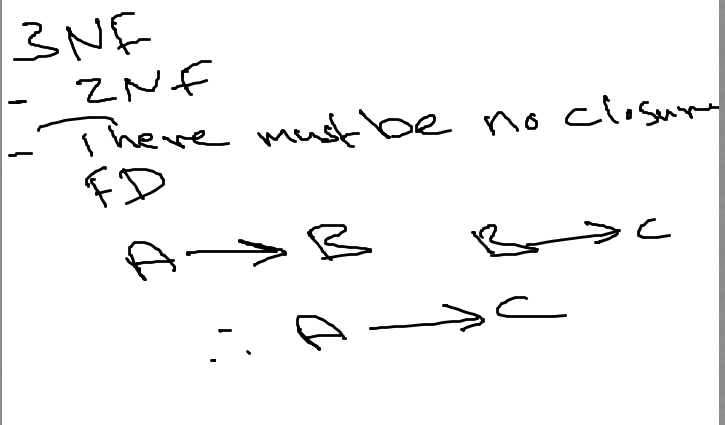 3NF
- 2NF
- There must be no closure
FD
A → B B → C
∴ A → C